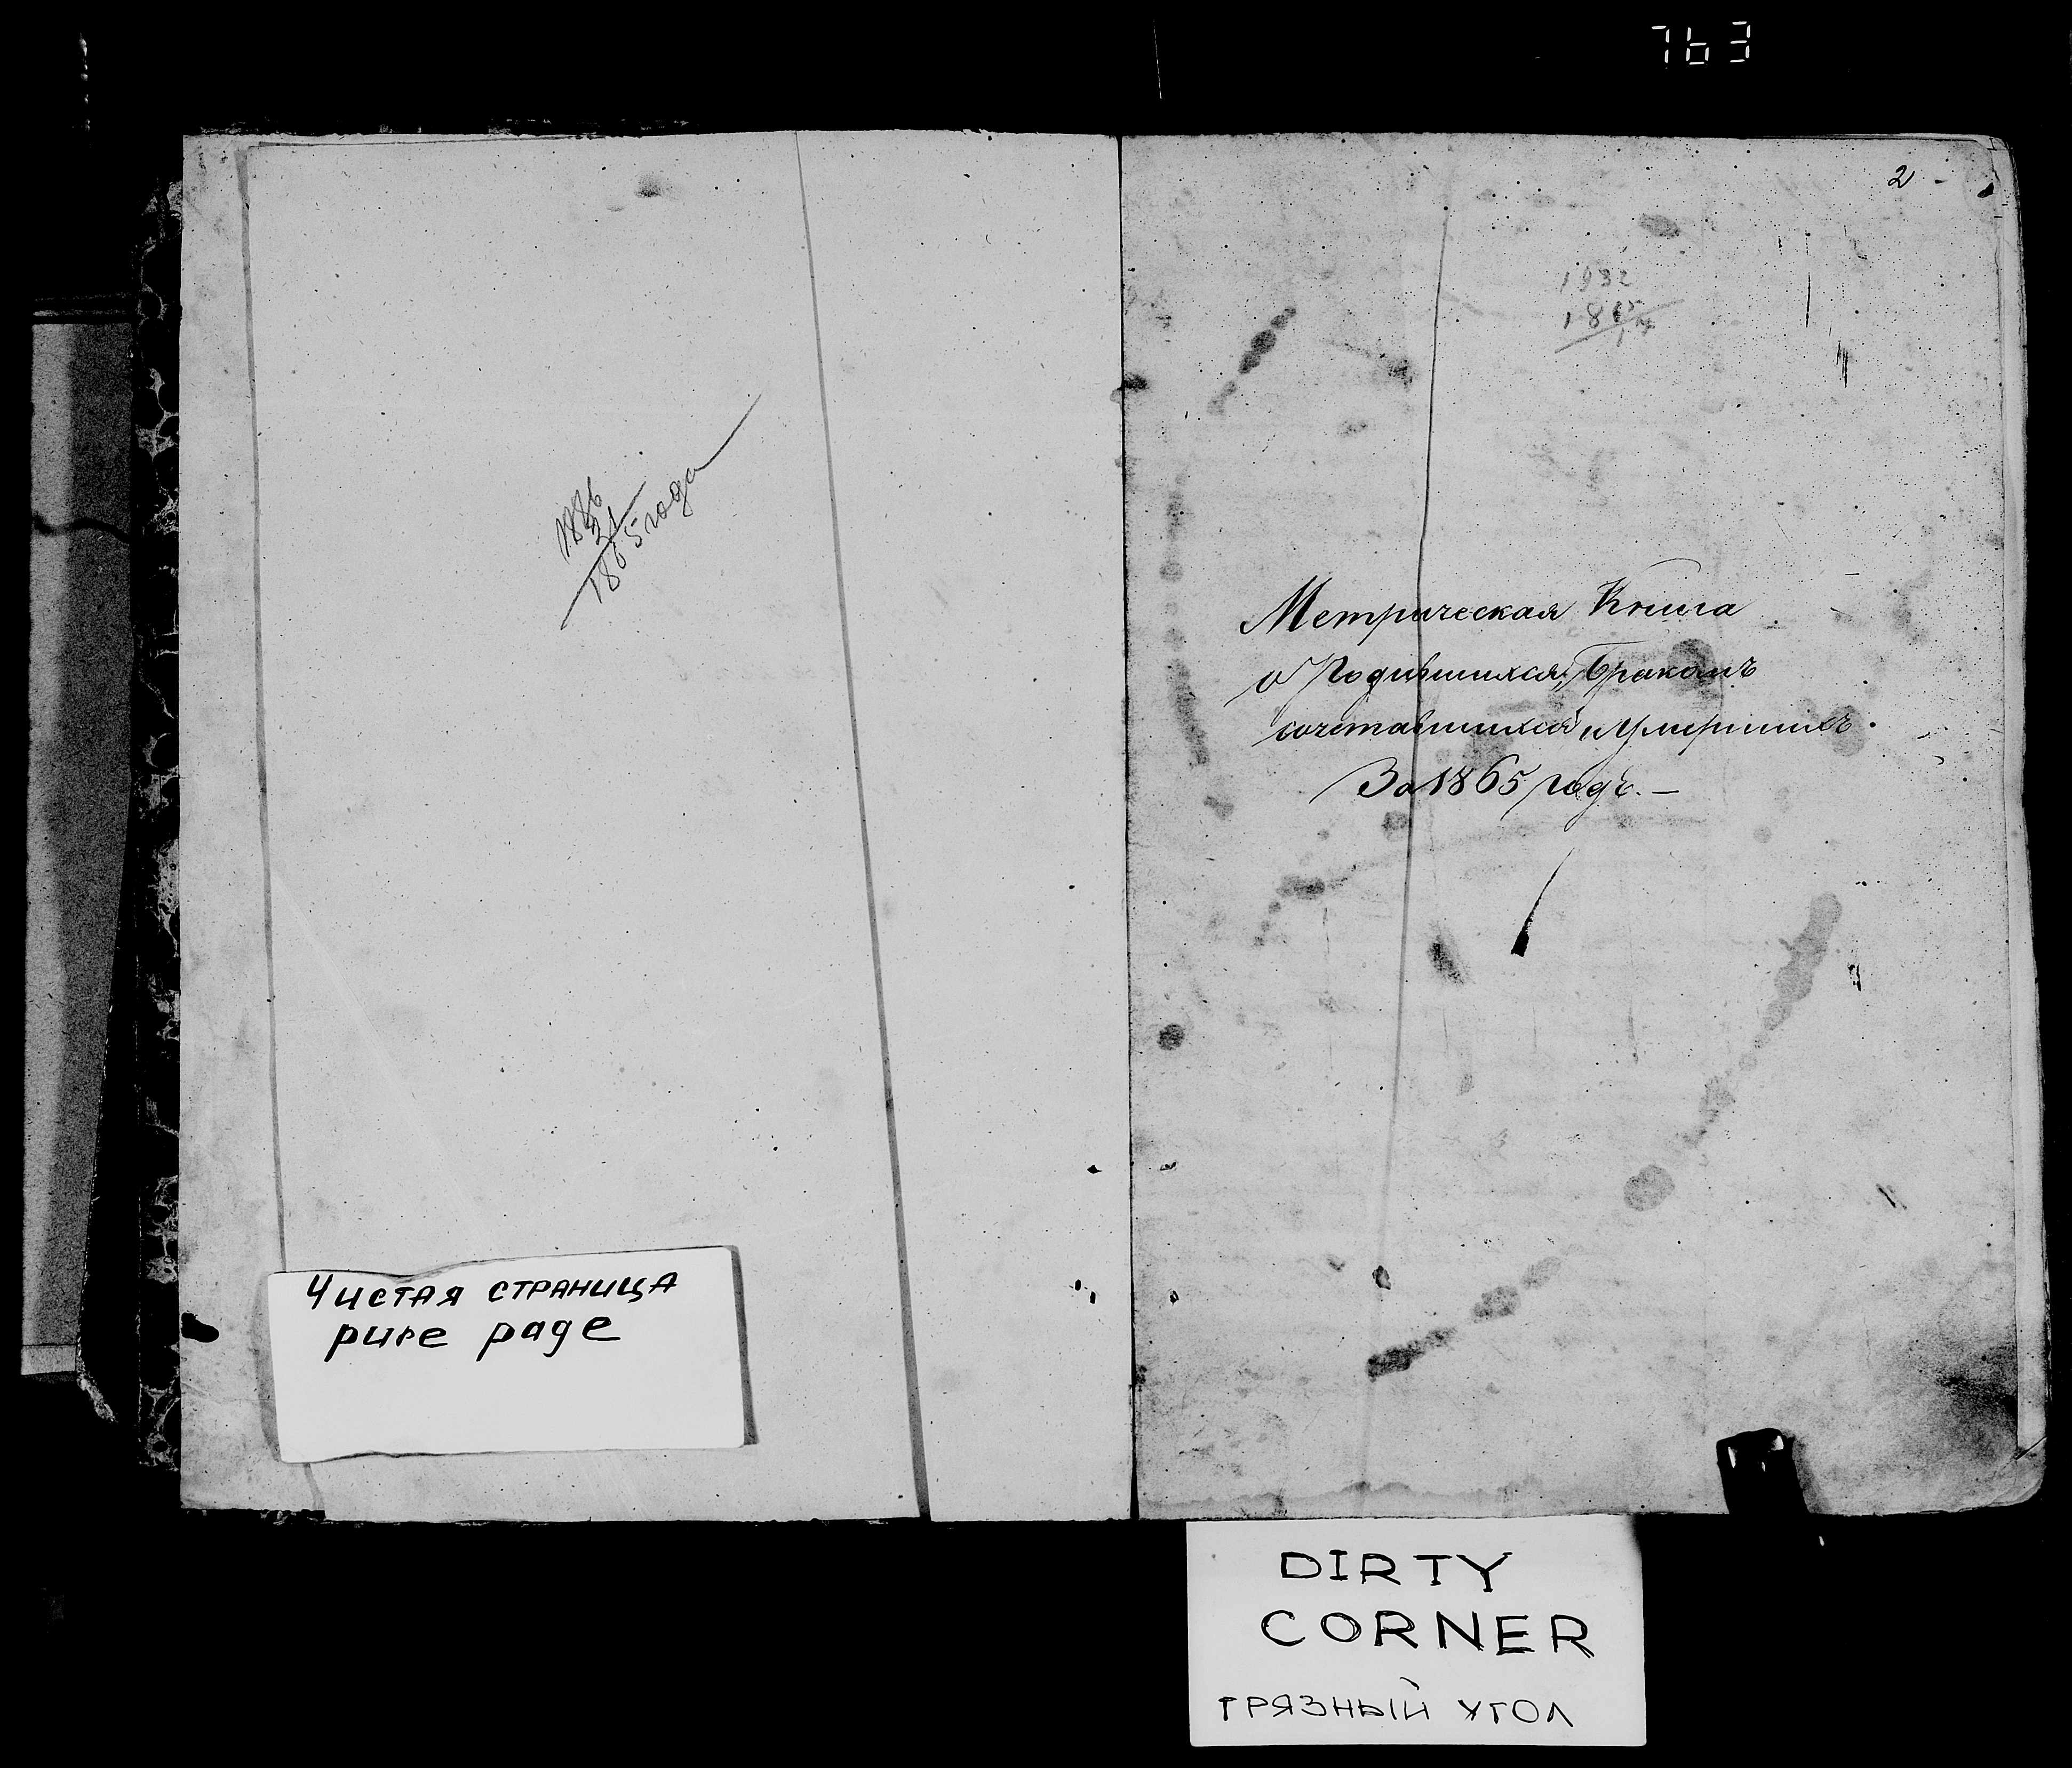 763
2 -
1932
186
21
1865 года
Метрическая Книга
о Родившихся, Бракомъ
сочетавшихся и Умершихъ.
За 1865 годъ. —
Чистая страница
pure page
DIRTY
CORNER
грязный угол